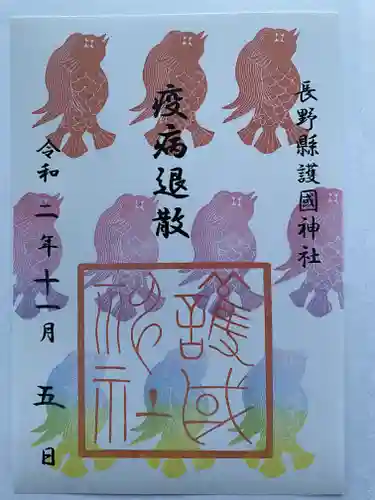 長野縣護國神社
疫病退散
令和二年十一月五日
護国
神社